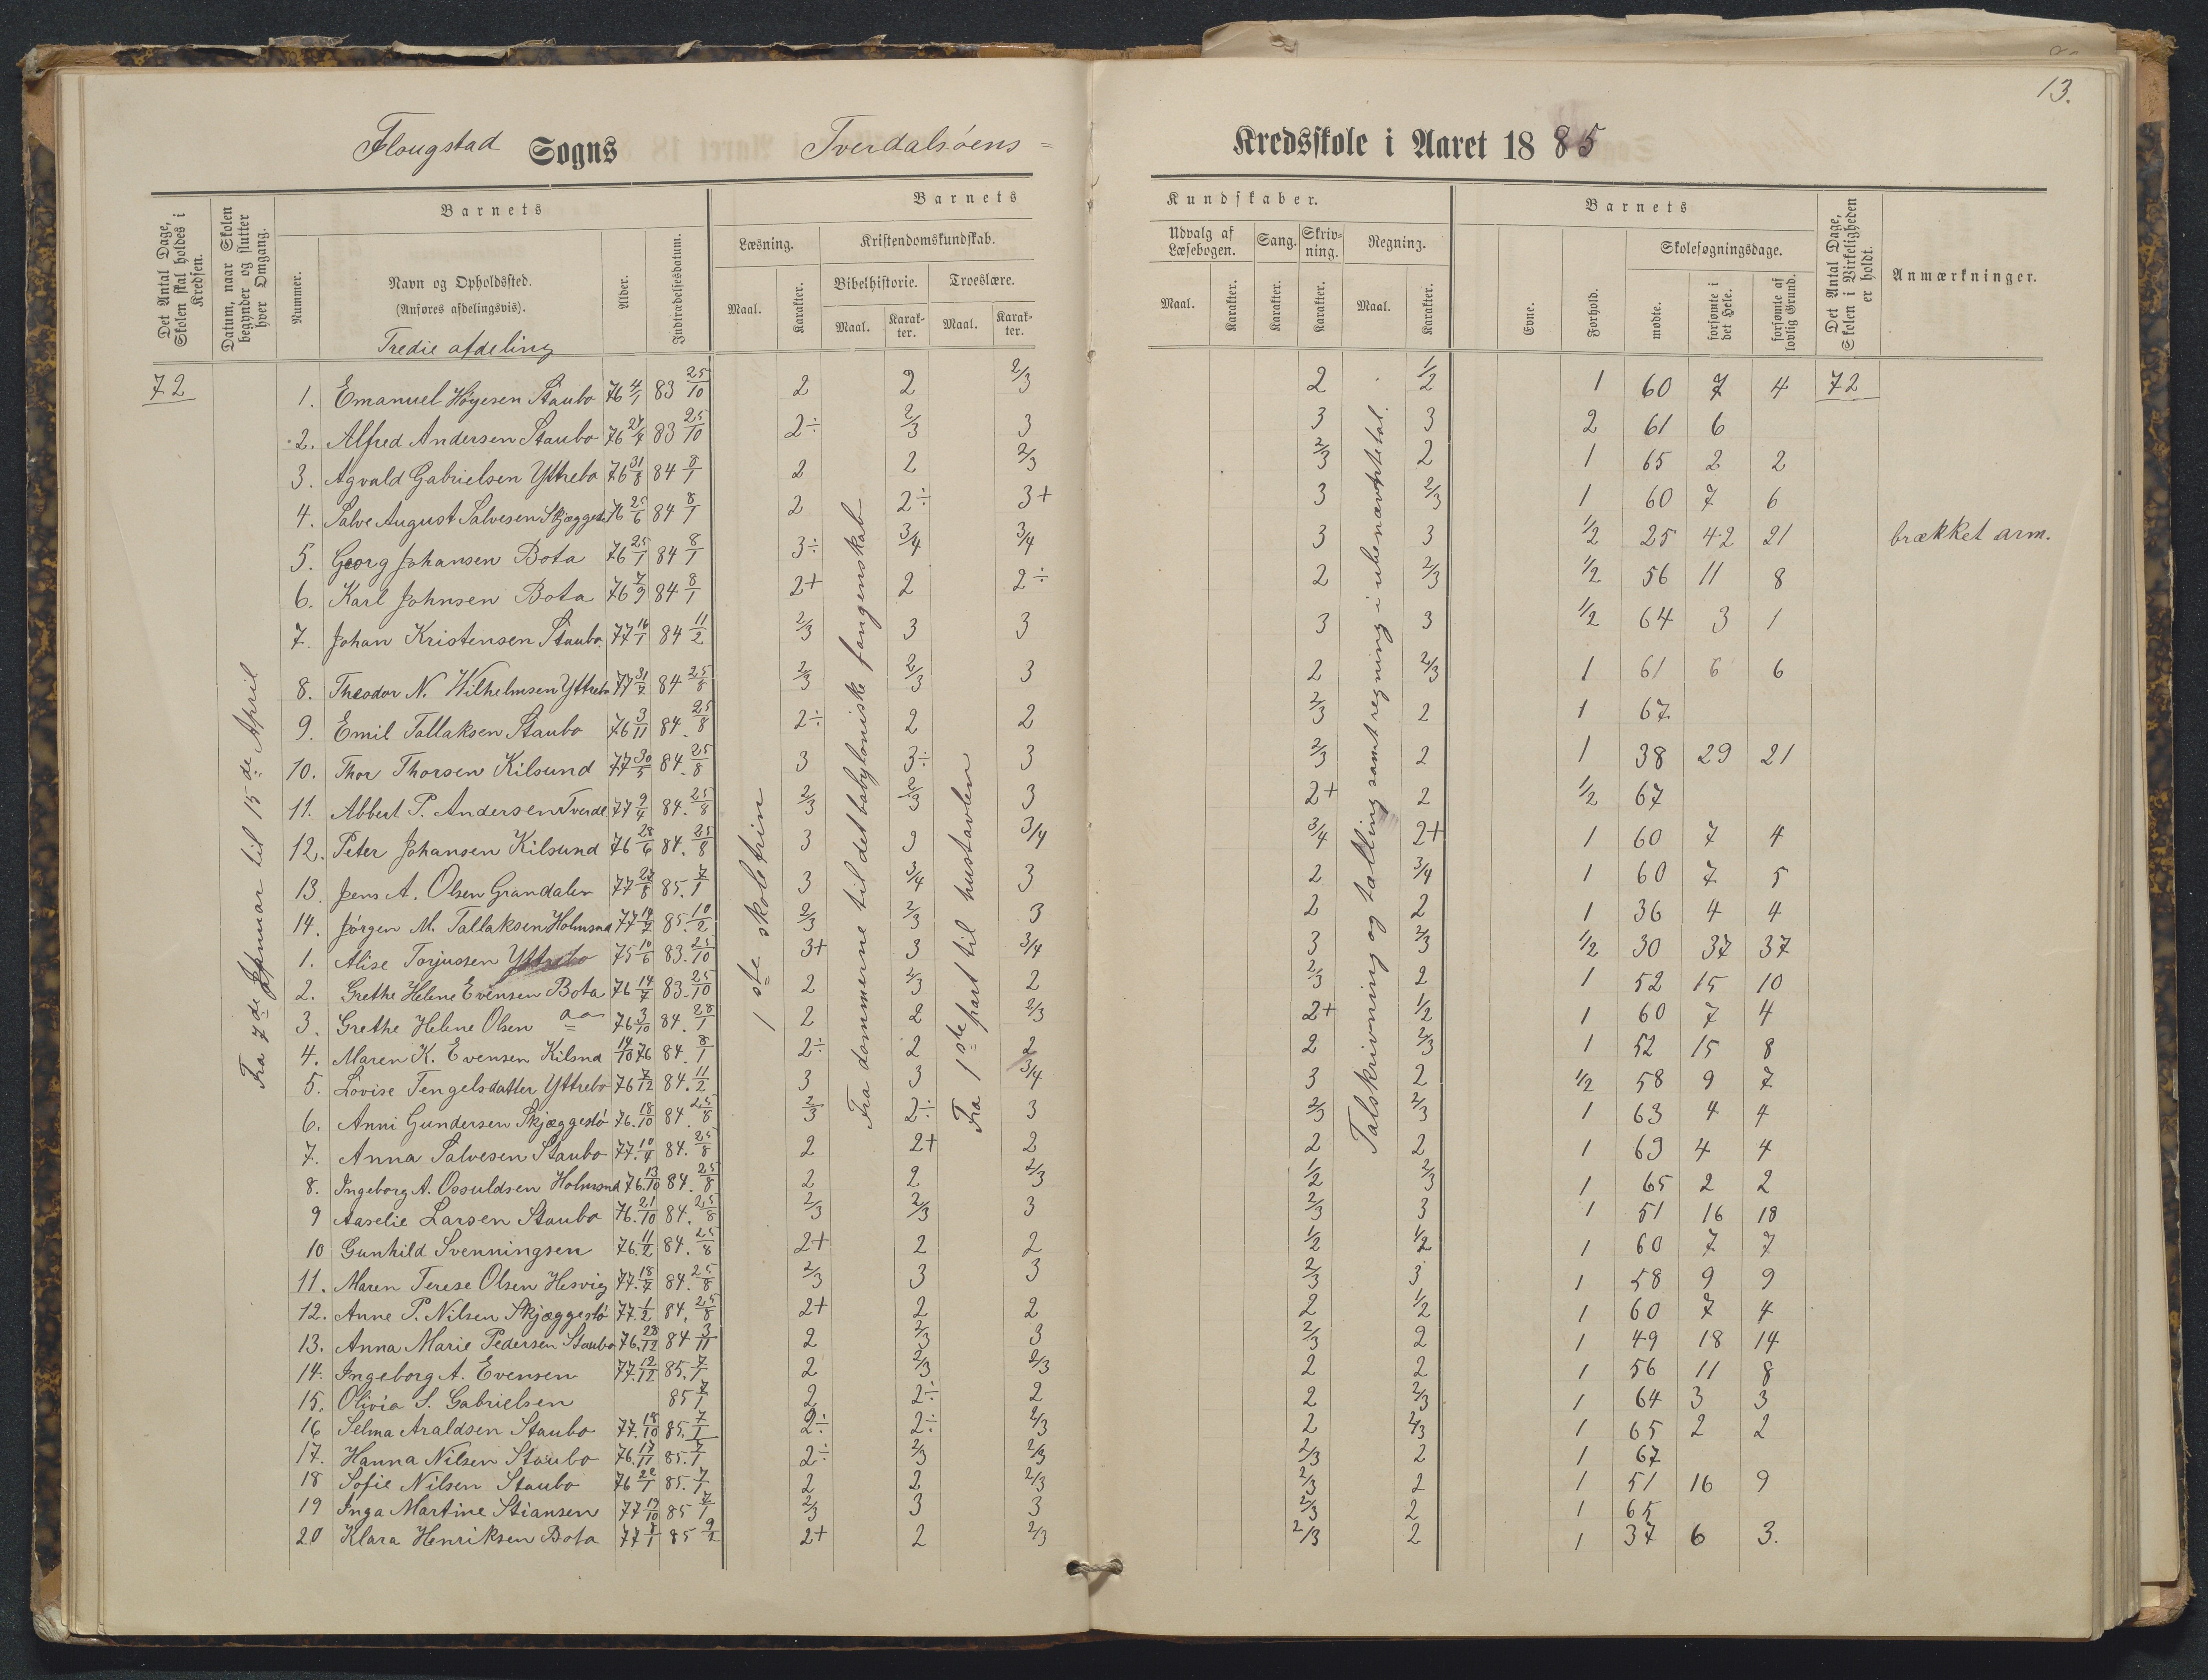 13.
Flougstad Sogns Tverdalsöens Kredsskole i Aaret 1885
Det Antal Dage, Skolen skal holdes i Kredsen.
Datum, naar Skolen begynder og slutter hver Omgang.
Barnets
Nummer.
Navn og Opholdssted.
(Anføres afdelingsvis).
Alder.
Indtrædelsesdatum.
Barnets Kundskaber.
Læsning.
Maal.
Karakter.
Kristendomskundskab.
Bibelhistorie.
Maal.
Karakter.
Troeslære.
Maal.
Karakter.
Udvalg af Læsebogen.
Maal.
Karakter.
Sang.
Karakter.
Skrivning.
Karakter.
Regning.
Maal.
Karakter.
Barnets
Evne.
Forhold.
Skolesøgningsdage.
mødte.
forsømte i det Hele.
forsømte af lovlig Grund.
Det Antal Dage, Skolen i Virkeligheden er holdt.
Anmærkninger.
Tredie afdeling
72
Fra 7de Januar til 15de April
1ste skoletrin
Fra dommerne til det babyloniske fangenskab
Fra 1ste part til hustavlen
Talskrivning og tælling samt regning i ubenævnte tal.
1. Emanuel Høyesen Staubo 76 4/1 83 25/10 2 2 2/3 2 1/2 1 60 7 4 72
2. Alfred Andersen Staubo 76 83 25/10 2÷ 2/3 3 3 3 2 61 6
3. Agvald Gabrielsen Yttrebo 76 31/8 84 8/1 2 2 2/3 2/3 2 1 65 2 2
4. Salve August Salvesen 76 25/6 84 8/1 2 2÷ 3+ 3 2/3 1 60 7 6
5. Georg Johansen Bota 76 25/1 84 8/1 3÷ 3/4 3/4 3 3 1/2 25 42 21 brækket arm.
6. Karl Johnsen Bota 76 7/9 84 8/1 2+ 2 2÷ 2 2/3 1/2 56 11 8
7. Johan Kristensen Staubo. 77 16/1 84 11/2 2/3 3 3 3 3 1/2 64 3 1
8. Theodor N. Wilhelmsen Yttrebo 77 84 25/8 2/3 2/3 3 2 2/3 1 61 6 6
9. Emil Tallaksen Staubo 76 3/11 84. 25/8 2÷ 2 2 2/3 2 1 67
10. Thor Thorsen Kilsund 77 30/5 84. 25/8 3 3÷ 3 2/3 2 1 38 29 21
11. Albert P. Andersen Tverdal 77 84. 25/8 2/3 2/3 3 2+ 2 1/2 67
12. Peter Johansen Kilsund 76 28/6 84. 25/8 3 3 3/4 3/4 2+ 1 60 7 4
13. Jens A. Olsen Grandalen 77 27/8 85. 7/1 3 3/4 3 2 3/4 1 60 7 5
14. Jørgen M. Tallaksen 77 85. 10/2 2/3 2/3 3 2 2 1 36 4 4
1. Alise Torjussen Yttrebo 75 10/6 83. 25/10 3+ 3 3/4 3 2/3 1/2 30 37 37
2. Grethe Helene Evensen Bota 76 14/7 83. 25/10 2 2/3 2 2/3 2 1 52 15 10
3. Grethe Helene Olsen 76 3/10 84. 28/1 2 2 2/3 2+ 1/2 1 60 7 4
4. Maren K. Evensen Kilsnd 14/10 76 84. 8/1 2÷ 2 2 2 2/3 1 52 15 8
5. Lovise Tengelsdatter Yttrebo 76 7/12 84. 11/2 3 3 3/4 3 2 1/2 58 9 7
6. Anni Gundersen Skjæggestö 76. 18/10 84. 25/8 2/3 2÷ 3 2/3 2/3 1 63 4 4
7. Anna Salvesen Staubo 77. 10/4 84. 25/8 2 2+ 2 2 2 1 63 4 4
8. Ingeborg A. Osuldsen 76. 13/10 84. 25/8 2 2 2/3 1/2 2/3 1 65 2 2
9 Aaselie Larsen Staubo 76. 21/10 84. 25/8 2/3 2/3 3 2/3 3 1 51 16 18
10 Gunhild Svenningsen 76. 11/2 84. 25/8 2+ 2 2 1/2 1/2 1 60 7 7
11. Maren Terese Olsen Hesvig 77. 18/7 84. 25/8 2/3 3 3 2/3 3 1 58 9 9
12. Anne P. Nilsen Skjæggestö 77. 1/2 84. 25/8 2+ 2 2 2 1/2 1 60 7 4
13. Anna Marie Pedersen Staubo 76. 28/12 84 3/11 2 2/3 3 2/3 2 1 49 18 14
14. Ingeborg A. Evensen 77. 12/12 85. 7/1 2 2/3 2/3 2 2 1 56 11 8
15. Olivia S. Gabrielsen 85 7/1 2 2÷ 2 2 2/3 1 64 3 3
16 Selma Araldsen Staubo 77. 18/10 85. 7/1 2÷ 2÷ 2/3 2 2/3 1 65 2 2
17. Hanna Nilsen Staubo 76. 17/11 85. 7/1 2÷ 2/3 2/3 2/3 2 1 67
18 Sofie Nilsen Staubo 76 22/1 85. 7/1 2 2 2/3 2/3 2 1 51 16 9
19 Inga Martine Stiansen 77 19/10 85 7/1 2/3 3 3 2/3 2 1 65
20 Klara Henriksen Bota 77 85 9/2 2+ 2 2/3 2/3 2 1 37 6 3.